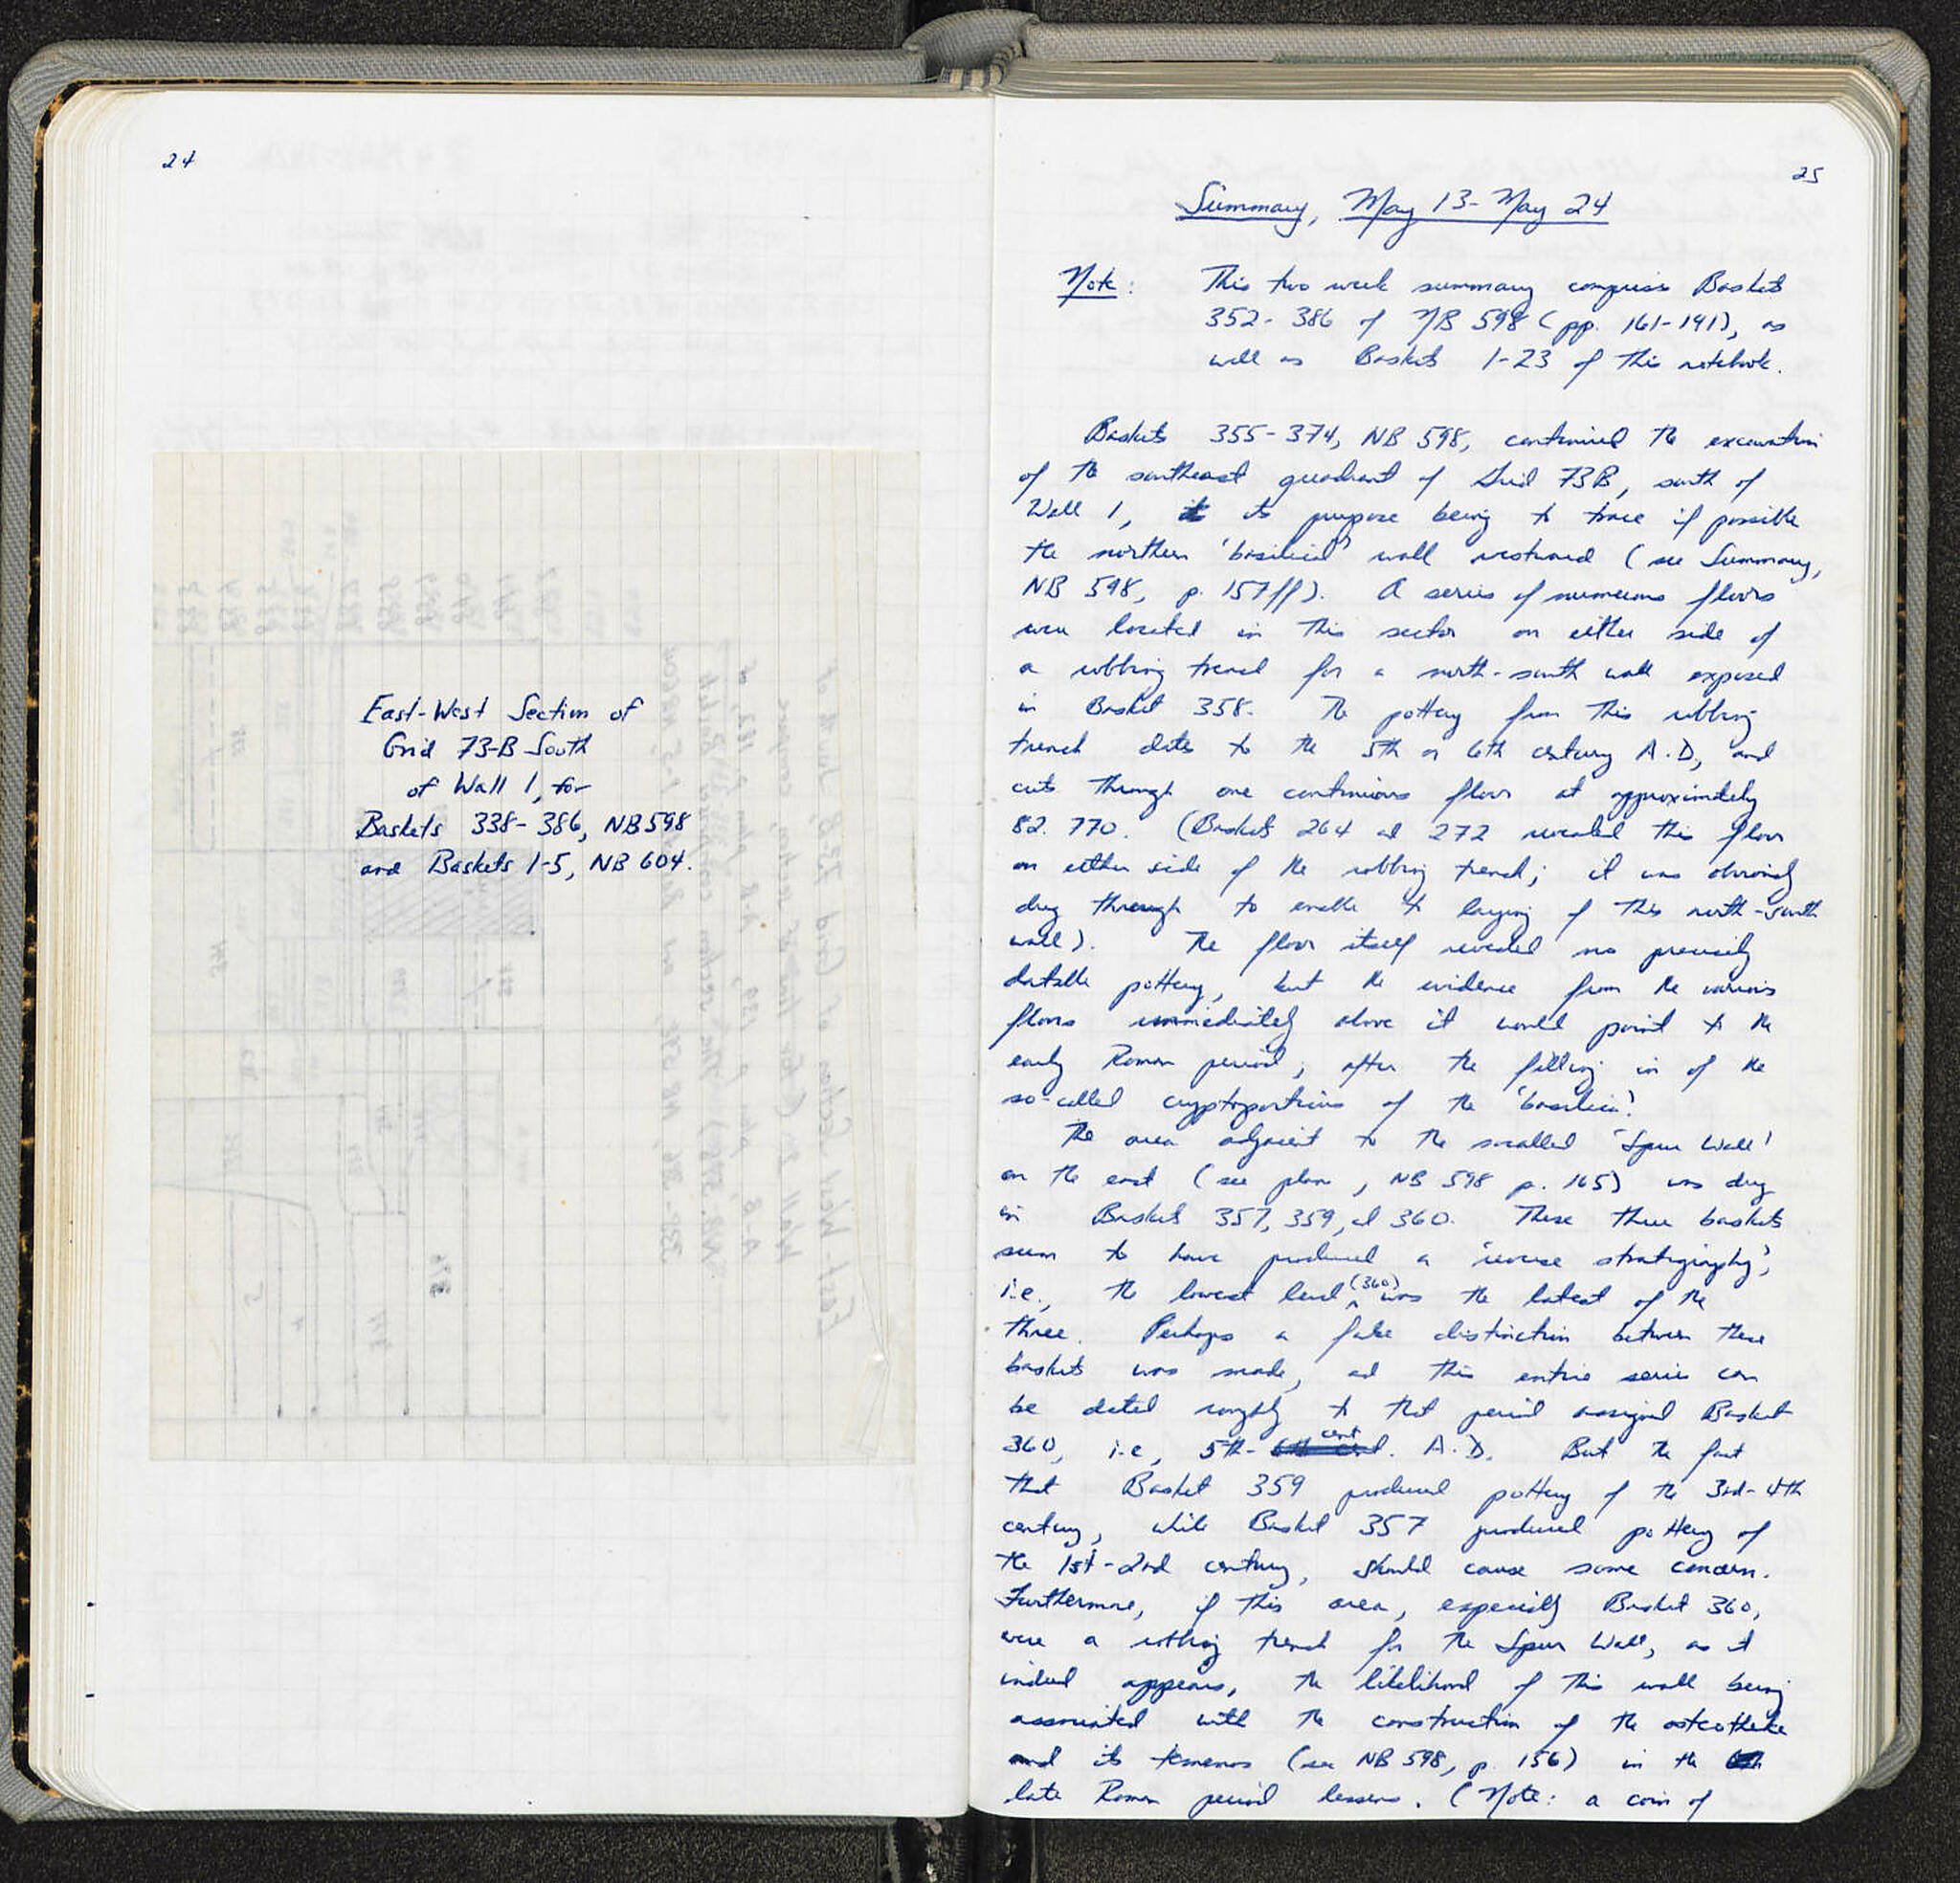 24
East-West Section of
Grid 73-B South
of Wall 1, for
Baskets 338-386, NB598
and Baskets 1-5, NB 604.
25
Summary, May 13-May 24
Note: This two week summary comprises Baskets
352-386 of NB 598 (pp. 161-191), as
well as Baskets 1-23 of this notebook.
Baskets 355-374, NB 598, continued the excavation
of the southeast quadrant of Grid 73B, south of
Wall 1, its purpose being to trace if possible
the northern 'basilica' wall restored (see Summary,
NB 598, p. 157ff). A series of numerous floors
were located in this sector on either side of
a robbing trench for a north-south wall exposed
in Basket 358. The pottery from this robbing
trench dates to the 5th or 6th century A.D, and
cuts through one continuous floor at approximately
82.770. (Baskets 264 and 272 revealed this floor
on either side of the robbing trench; it was obviously
dug through to enable the laying of this north-south
wall). The floor itself revealed no precisely
datable pottery, but the evidence from the various
floors immediately above it would point to the
early Roman period, after the filling in of the
so-called cryptoporticus of the 'basilica'.
The area adjacent to the so-called 'Spur Wall'
on the east (see plan, NB 598 p. 165) was dug
in Baskets 357, 359, and 360. These three baskets
seem to have produced a 'reverse stratigraphy',
i.e., the lowest level (360) was the latest of the
three. Perhaps a false distinction between these
baskets was made, and this entire series can
be dated roughly to that period assigned Basket
360, i.e, 5th cent. A.D. But the fact
that Basket 359 produced pottery of the 3rd-4th
century, while Basket 357 produced pottery of
the 1st-2nd century, should cause some concern.
Furthermore, if this area, especially Basket 360,
were a robbing trench for the Spur Wall, as it
indeed appears, the likelihood of this wall being
associated with the construction of the osteotheke
and its temenos (see NB 598, p. 156) in the
late Roman period lessens. (Note: a coin of